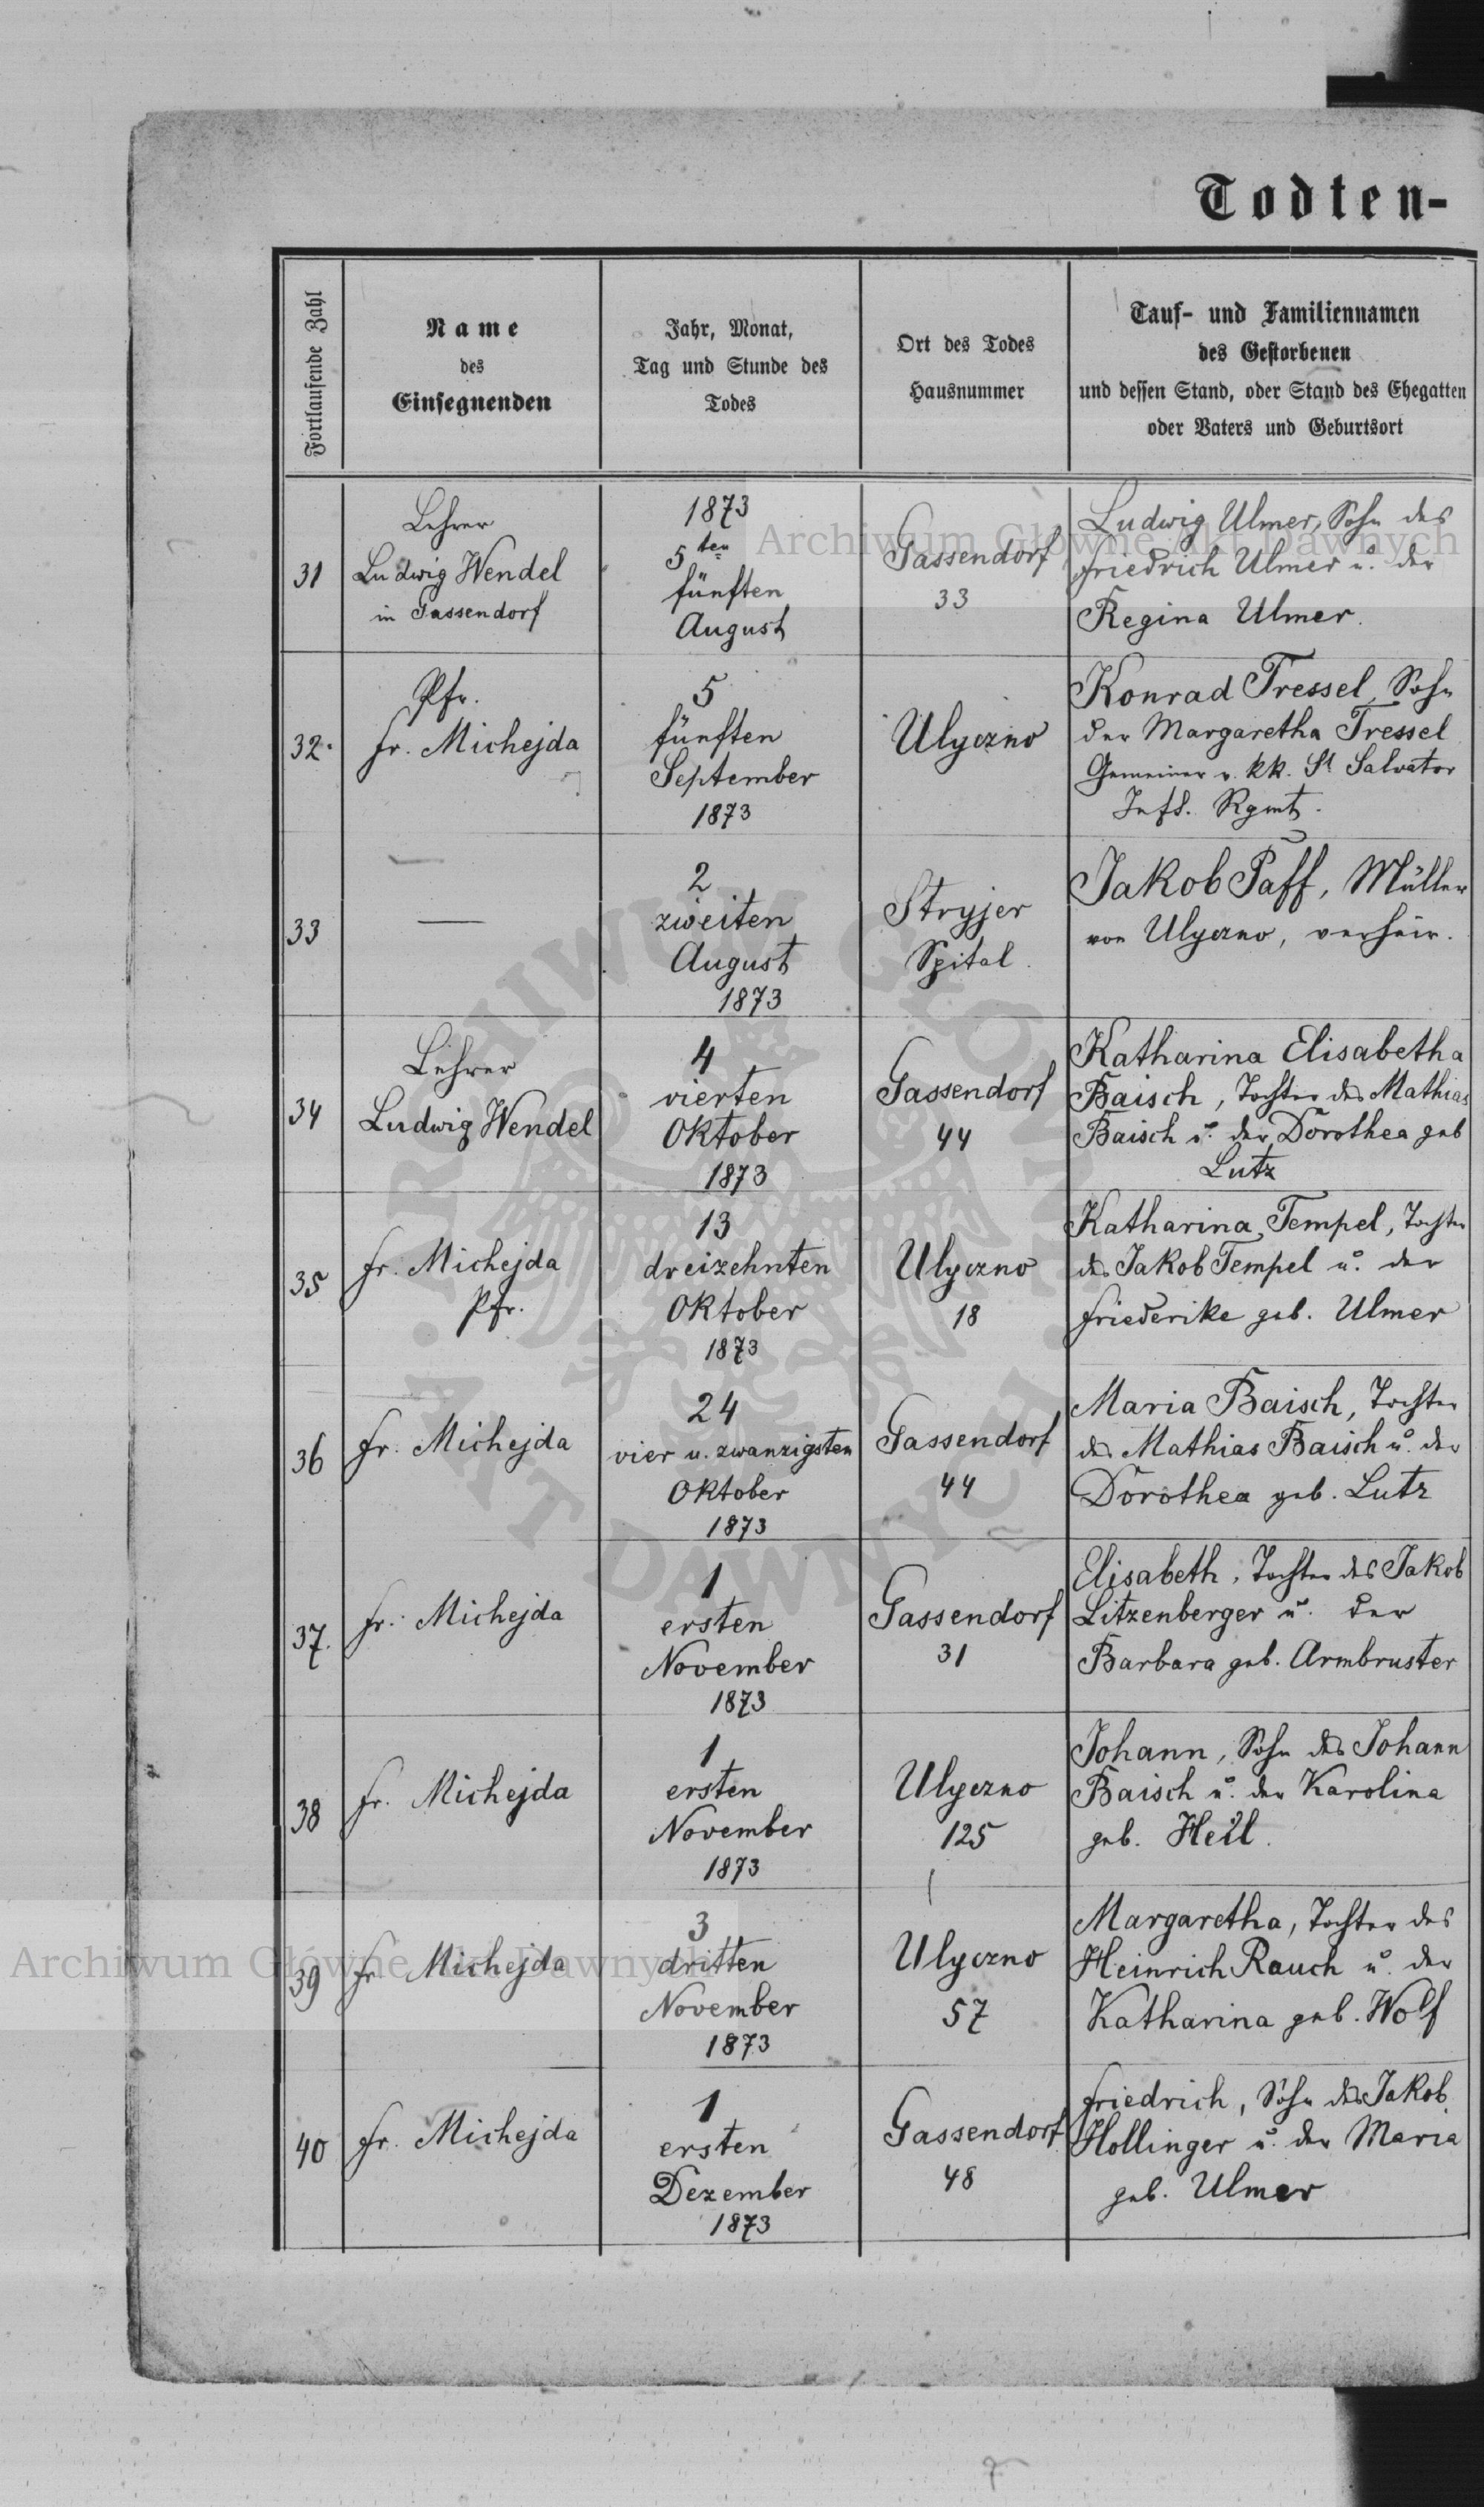 Todten-
Fortlaufende Zahl
Name
des
Einsegnenden
Jahr, Monat,
Tag und Stunde des
Todes
Ort des Todes
Hausnummer
Tauf- und Familiennamen
des Gestorbenen
und dessen Stand, oder Stand des Ehegatten
oder Vaters und Geburtsort
31
Lehrer
Ludwig Wendel
in Gassendorf
1873
5ten
fünften
August
Gassendorf
33
Ludwig Ulmer, Sohn des
Friedrich Ulmer u. der
Regina Ulmer.
32.
Pfr.
Fr. Michejda
5
fünften
September
1873
Ulyczno
Konrad Tressel, Sohn
der Margaretha Tressel
Gemeiner v. kk. St Salvator
Inft. Rgmt.
33
—
2
zweiten
August
1873
Stryjer
Spital.
Jakob Paff, Müller
von Ulyczno, verheir.
34
Lehrer
Ludwig Wendel
4
vierten
Oktober
1873
Gassendorf
44
Katharina Elisabetha
Baisch, Tochter des Mathias
Baisch u. der Dorothea geb
Lutz
35
Fr. Michejda
Pfr.
13
dreizehnten
Oktober
1873
Ulyczno
18
Katharina Tempel, Tochter
des Jakob Tempel u. der
Friederike geb. Ulmer
36
Fr. Michejda
24
vier u. zwanzigsten
Oktober
1873
Gassendorf
44
Maria Baisch, Tochter
des Mathias Baisch u. der
Dorothea geb. Lutz
37.
Fr. Michejda
1
ersten
November
1873
Gassendorf
31
Elisabeth, Tochter des Jakob
Litzenberger u. der
Barbara geb. Armbruster
38
Fr. Michejda
1
ersten
November
1873
Ulyczno
125
Johann, Sohn des Johann
Baisch u. der Karolina
geb. Heil.
39
Fr. Michejda
3
dritten
November
1873
Ulyczno
57
Margaretha, Tochter des
Heinrich Rauch u. der
Katharina geb. Wolf
40
Fr. Michejda
1
ersten
Dezember
1873
Gassendorf
48
Friedrich, Sohn des Jakob
Hollinger u. der Maria
geb. Ulmer
Archiwum Główne Akt Dawnych
ARCHIWUM GŁÓWNE
AKT DAWNYCH
Archiwum Główne Akt Dawnych